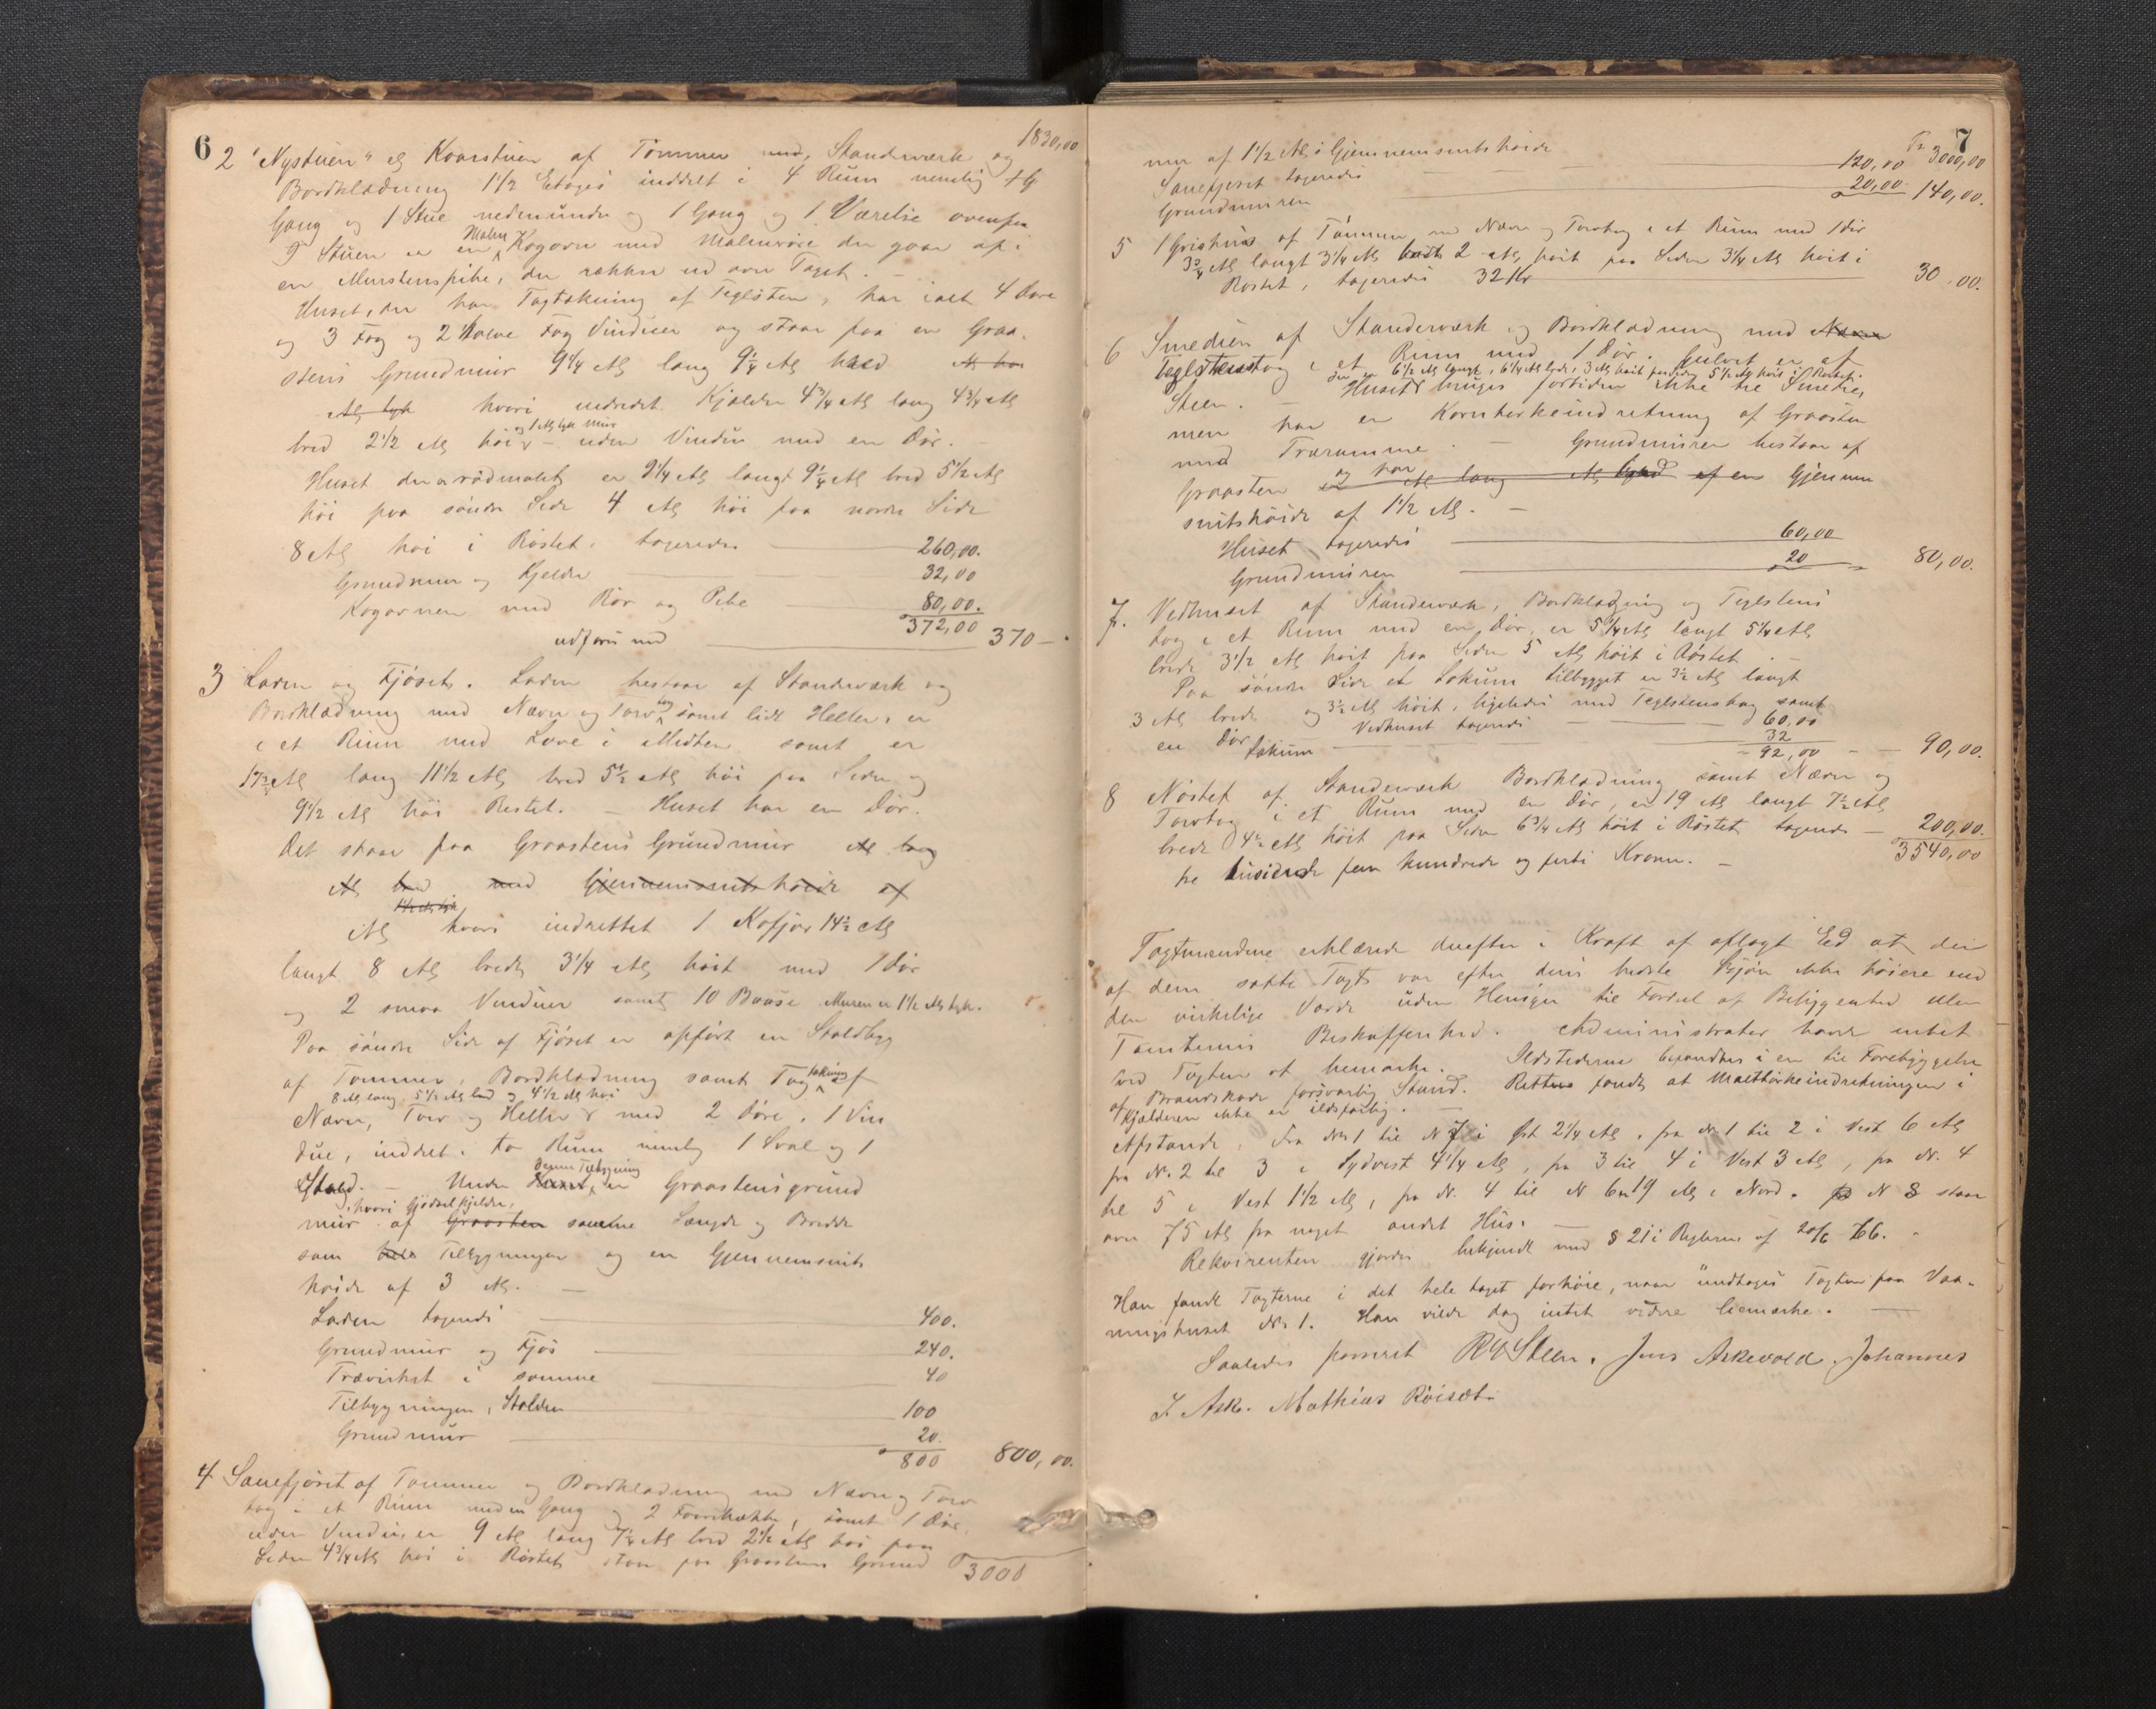 6
1830,00
2 "Nystuen" elg Kaarstuen af Tømmer med, Standerværk og
Bordklædning 1 1/2 Etages inddelt i 4 Rum nemlig 1 G
Gang og 1 Stue nedenunder og 1 Gang og 1 Værelse ovenpaa
I Stuen er en Malm Kogovn med Malmrøre der gaar op i
en Murstenspibe, der rækker ud over Taget. —
Huset, der har Tagtækning af Teglsten, har ialt 4 Døre
og 3 Fag og 2 halve Fag Vinduer og staar paa en Graa-
stens Grundmur 9 1/4 Al lang 9 1/4 Al bred Al høi
Al tyk hvori indredet Kjælder 4 3/4 Al lang 4 3/4 Al
bred 2 1/2 Al høi og 1 Al tyk Mur — uden Vindu med en Dør. —
Huset der er rødmalet er 9 1/4 Al langt 9 1/4 Al bred 5 1/2 Al
høi paa søndre Side 4 Al høi paa nordre Side
8 Al høi i Røstet, taxeredes 260,00.
Grundmur og Kjelder 32,00
Kogovnen med Rør og Pibe 80,00.
372,00
udføres med 370 — .
3 Laden og Fjøset. Laden bestaar af Standerværk og
Bordklædning med Næver og Torvtag samt lidt Heller, er
i et Rum med Love i Midten samt er
17 1/2 Al lang 11 1/2 Al bred 5 1/2 Al høi paa Siden og
9 1/2 Al høi Røstet. — Huset har en Dør.
Det staar paa Graastens Grundmur Al lang
Al bred med Gjennemsnitshøide af
1 1/2 Al tyk
Al hvori indrettet 1 Kofjøs 14 1/2 Al
langt 8 Al bredt 3 1/4 Al høit med 1 Dør
og 2 smaa Vinduer samt 10 Baase Muren er 1 1/2 Al tyk.
Paa søndre Side af Fjøset er opført en Staldbyg
af Tømmer, Bordklædning samt Tagtækning af
8 Al lang 5 1/2 Al bred og 4 1/2 Al høi
Næver, Torv og Heller med 2 Døre, 1 Vin
due, inddelt i to Rum nemlig 1 Sval og 1
Stald. — Under Huset denne Tilbygning er Graastensgrund
mur, hvori Gjødselkjelder, af Graasten samme Længde og Bredde
som hele Tilbygningen og en Gjennemsnits
høide af 3 Al. —
Laden taxeredes 400.
Grundmur og Fjøs 240.
Træværket i samme 40
Tilbygningen, Stalden 100
Grundmur 20.
800 800,00.
4 Sauefjøset af Tømmer og Bordklædning med Næver og Torv
tag i et Rum med en Gang og 2 Faarekrækker, samt 1 Dør
uden Vindu, er 9 Al lang 7 1/4 Al bred 2 1/2 Al høi paa
Siden 4 3/4 Al høi i Røstet staar paa Graastens Grund
3000
7
Tr 3000,00
mur af 1 1/2 Al i Gjennemsnitshøide
Sauefjøset taxeredes 120,00
Grundmuren 20,00. 140,00.
5 1 Grishus af Tømmer med Næver og Torvtag i et Rum med 1 Dør
3 3/4 Al langt 3 1/4 Al bredt 2 Al høit paa Siden 3 1/4 Al høit i
Røstet, taxeredes 32 Kr 30,00.
6 Smedien af Standerværk og Bordklædning med Næver
Teglstenstag i et Rum med 1 Dør. Gulvet er af
der er 6 1/2 Al langt, 6 1/4 Al bredt, 3 Al høit paa Siden 5 1/2 Al høit i Røstet.
Steen. — Huset bruges fortiden ikke til Smedie,
men har en Kornturkeindretning af Graasten
med Træramme. — Grundmuren bestaar af
Graasten og har Al lang Al bred af en Gjennem
snitshøide af 1 1/2 Al. —
Huset taxeredes 60,00
Grundmuren 20 80,00.
7. Vedhuset af Standerværk, Bordklædning og Teglstens
tag i et Rum med en Dør, er 5 1/4 Al langt 5 1/4 Al
bredt 3 1/2 Al høit paa Siden 5 Al høit i Røstet. —
Paa søndre Side et Lokum tilbygget er 3 1/2 Al langt
3 Al bredt og 3 1/2 Al høit, ligeledes med Teglstenstag samt
en Dør
Vedhuset taxeredes 60,00
Lokum 32
92,00 — — 90,00.
8 Nøstet af Standerværk Bordklædning samt Næver og
Torvtag i et Rum med en Dør, er 19 Al langt 7 1/2 Al
bredt 4 1/2 Al høit paa Siden 6 3/4 Al høit i Røstet taxeredes — 200,00.
3540,00
tre tusinde fem hundrede og furti Kroner. —
Taxtmændene erklærede derefter i Kraft af aflagt Ed at den
af dem satte Taxt var efter deres bedste Skjøn ikke høiere end
den virkelige Værdi uden Hensyn til Fordel af Beliggenhed eller
Tomtens Beskaffenhed. Administrator havde intet
ved Taxten at bemærke. Ildstederne befandtes i en til Forebyggelse
af Brandskade forsvarlig Stand. Retten fandt at Malttørkeindretningen i
Kjælderen ikke er ildsfarlig. —
Afstande. Fra Nr 1 til N 7 i Øst 2 1/4 Al, fra Nr 1 til 2 i Vest 6 Al
fra Nr. 2 til 3 i Sydvest 4 1/4 Al, fra 3 til 4 i Vest 3 Al, fra Nr. 4
til 5 i Vest 1 1/2 Al, fra Nr. 4 til N 6 19 Al i Nord. N 8 staar
over 75 Al fra noget andet Hus. —
Rekvirenten gjordes bekjendt med § 21 i Reglerne af 20/6 - 66. -
Han fandt Taxterne i det hele taget for høie, naar undtages Taxten paa Vaa-
ningshuset Nr. 1. Han vilde dog intet videre bemærke. —
Saaledes passeret R Steen. Jens Askevold. Johannes
J. Ask. Mathias Røiset.